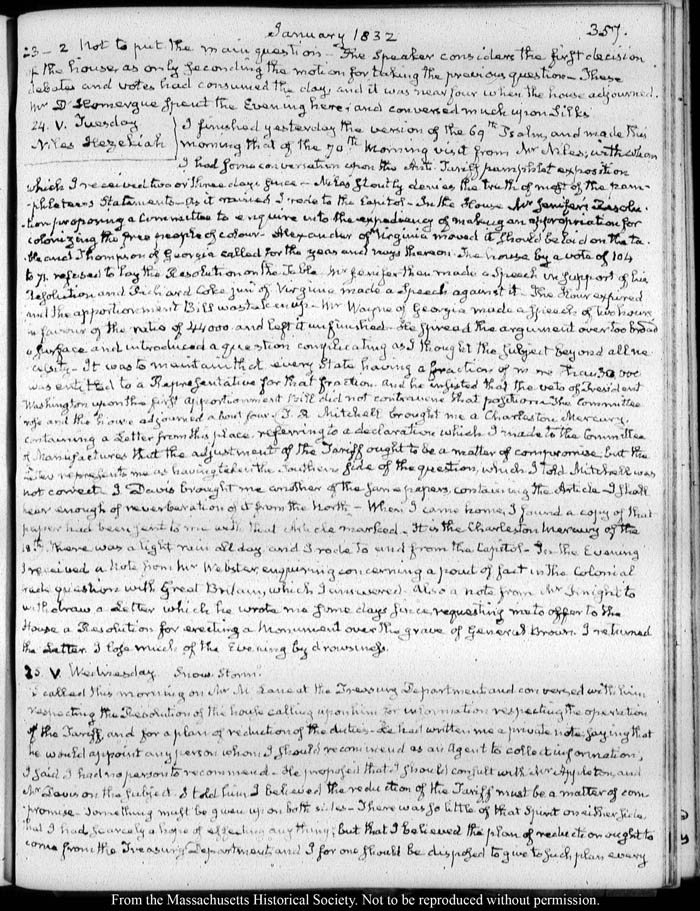 January 1832
357.
23 – 2 Not to put the main question – The Speaker considers the first decision
of the house, as only seconding the motion for taking the previous question – These
debates and votes had consumed the day, and it was near four when the house adjourned.
Mr D'Homergue spent the Evening here; and conversed much upon Silks
24. V. Tuesday
Niles Hezekiah
I finished yesterday the version of the 69th Psalm, and made this
morning that of the 70th Morning visit from Mr Niles; with whom
I had some conversation upon the Anti-Tariff pamphlet exposition
which I received two or three days since – Niles stoutly denies the truth of most of the pam-
phleteers Statements – As it rained I rode to the Capitol – In the House Mr Jenifer's Resolu-
tion proposing a Committee to enquire into the expediency of making an appropriation for
colonizing the free people of colour – Alexander of Virginia moved it should be laid on the ta-
ble and Thompson of Georgia called for the yeas and nays thereon. The house by a vote of 104
to 71. refused to lay the Resolution on the Table. Mr Jenifer then made a Speech in support of his
Resolution and Richard Coke junr of Virginia made a Speech against it – The hour expired
and the apportionment Bill was taken up – Mr Wayne of Georgia made a Speech of two hours
in favour of the ratio of 44000. and left it unfinished – He spread the argument over too broad
a surface, and introduced a question complicating as I thought the subject beyond all ne-
cessity – It was to maintain that every State having a fraction of more than 30 000
was entitled to a Representative for that fraction. And he insisted that the veto of President
Washington upon the first apportionment Bill did not contravene that position. The Committee
rose and the house adjourned about four. T. R. Mitchell brought me a Charleston Mercury,
containing a Letter from this place, referring to a declaration which I made to the Committee
of Manufactures that the adjustment of the Tariff ought to be a matter of compromise, but the
Letter represents me as having taken the Southern side of the question, which I told Mitchell was
not correct. J. Davis brought me another of the same papers, containing the Article – I shall
hear enough of reverberation of it from the North – When I came home, I found a copy of that
paper had been sent to me with that Article marked – It is the Charleston Mercury of the
18th. There was a light rain all day, and I rode to and from the Capitol – In the Evening
I received a Note from Mr Webster, enquiring concerning a point of fact in the Colonial
trade question with Great Britain, which I answered. Also a note from Mr Knight to
withdraw a Letter which he wrote me some days since, requesting me to offer to the
House a Resolution for erecting a Monument over the grave of General Brown. I returned
the Letter. I lose much of the Evening by drowsiness.
25. V. Wednesday. Snow Storm.
I called this morning on Mr McLane at the Treasury Department and conversed with him
respecting the Resolution of the house calling upon him for information respecting the operation
of the Tariff, and for a plan of reduction of the duties – He had written me a private note saying that
he would appoint any person whom I should recommend as an Agent to collect information,
I said I had no person to recommend – He proposed that I should consult with Mr Appleton, and
Mr Davis on the subject. I told him I believed the reduction of the Tariff must be a matter of com-
promise – Something must be given up on both sides – There was so little of that Spirit on either side,
that I had scarcely a hope of effecting any thing; but that I believed the plan of reduction ought to
come from the Treasury Department, and I for one should be disposed to give to such plan every
From the Massachusetts Historical Society. Not to be reproduced without permission.